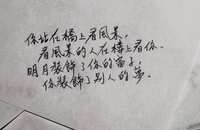 你站在橋上看風景，
看風景的人在樓上看你。
明月裝飾了你的窗子，
你裝飾了別人的夢。